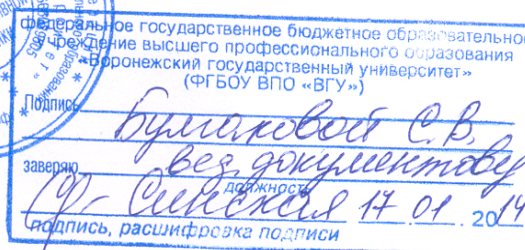 федеральное государственное бюджетное образовательное
учреждение высшего профессионального образования
«Воронежский государственный университет»
(ФГБОУ ВПО «ВГУ»)
Подпись Булгаковой С.В.
заверяю вед. документовед
должность
Синская 17.01.2014
подпись, расшифровка подписи